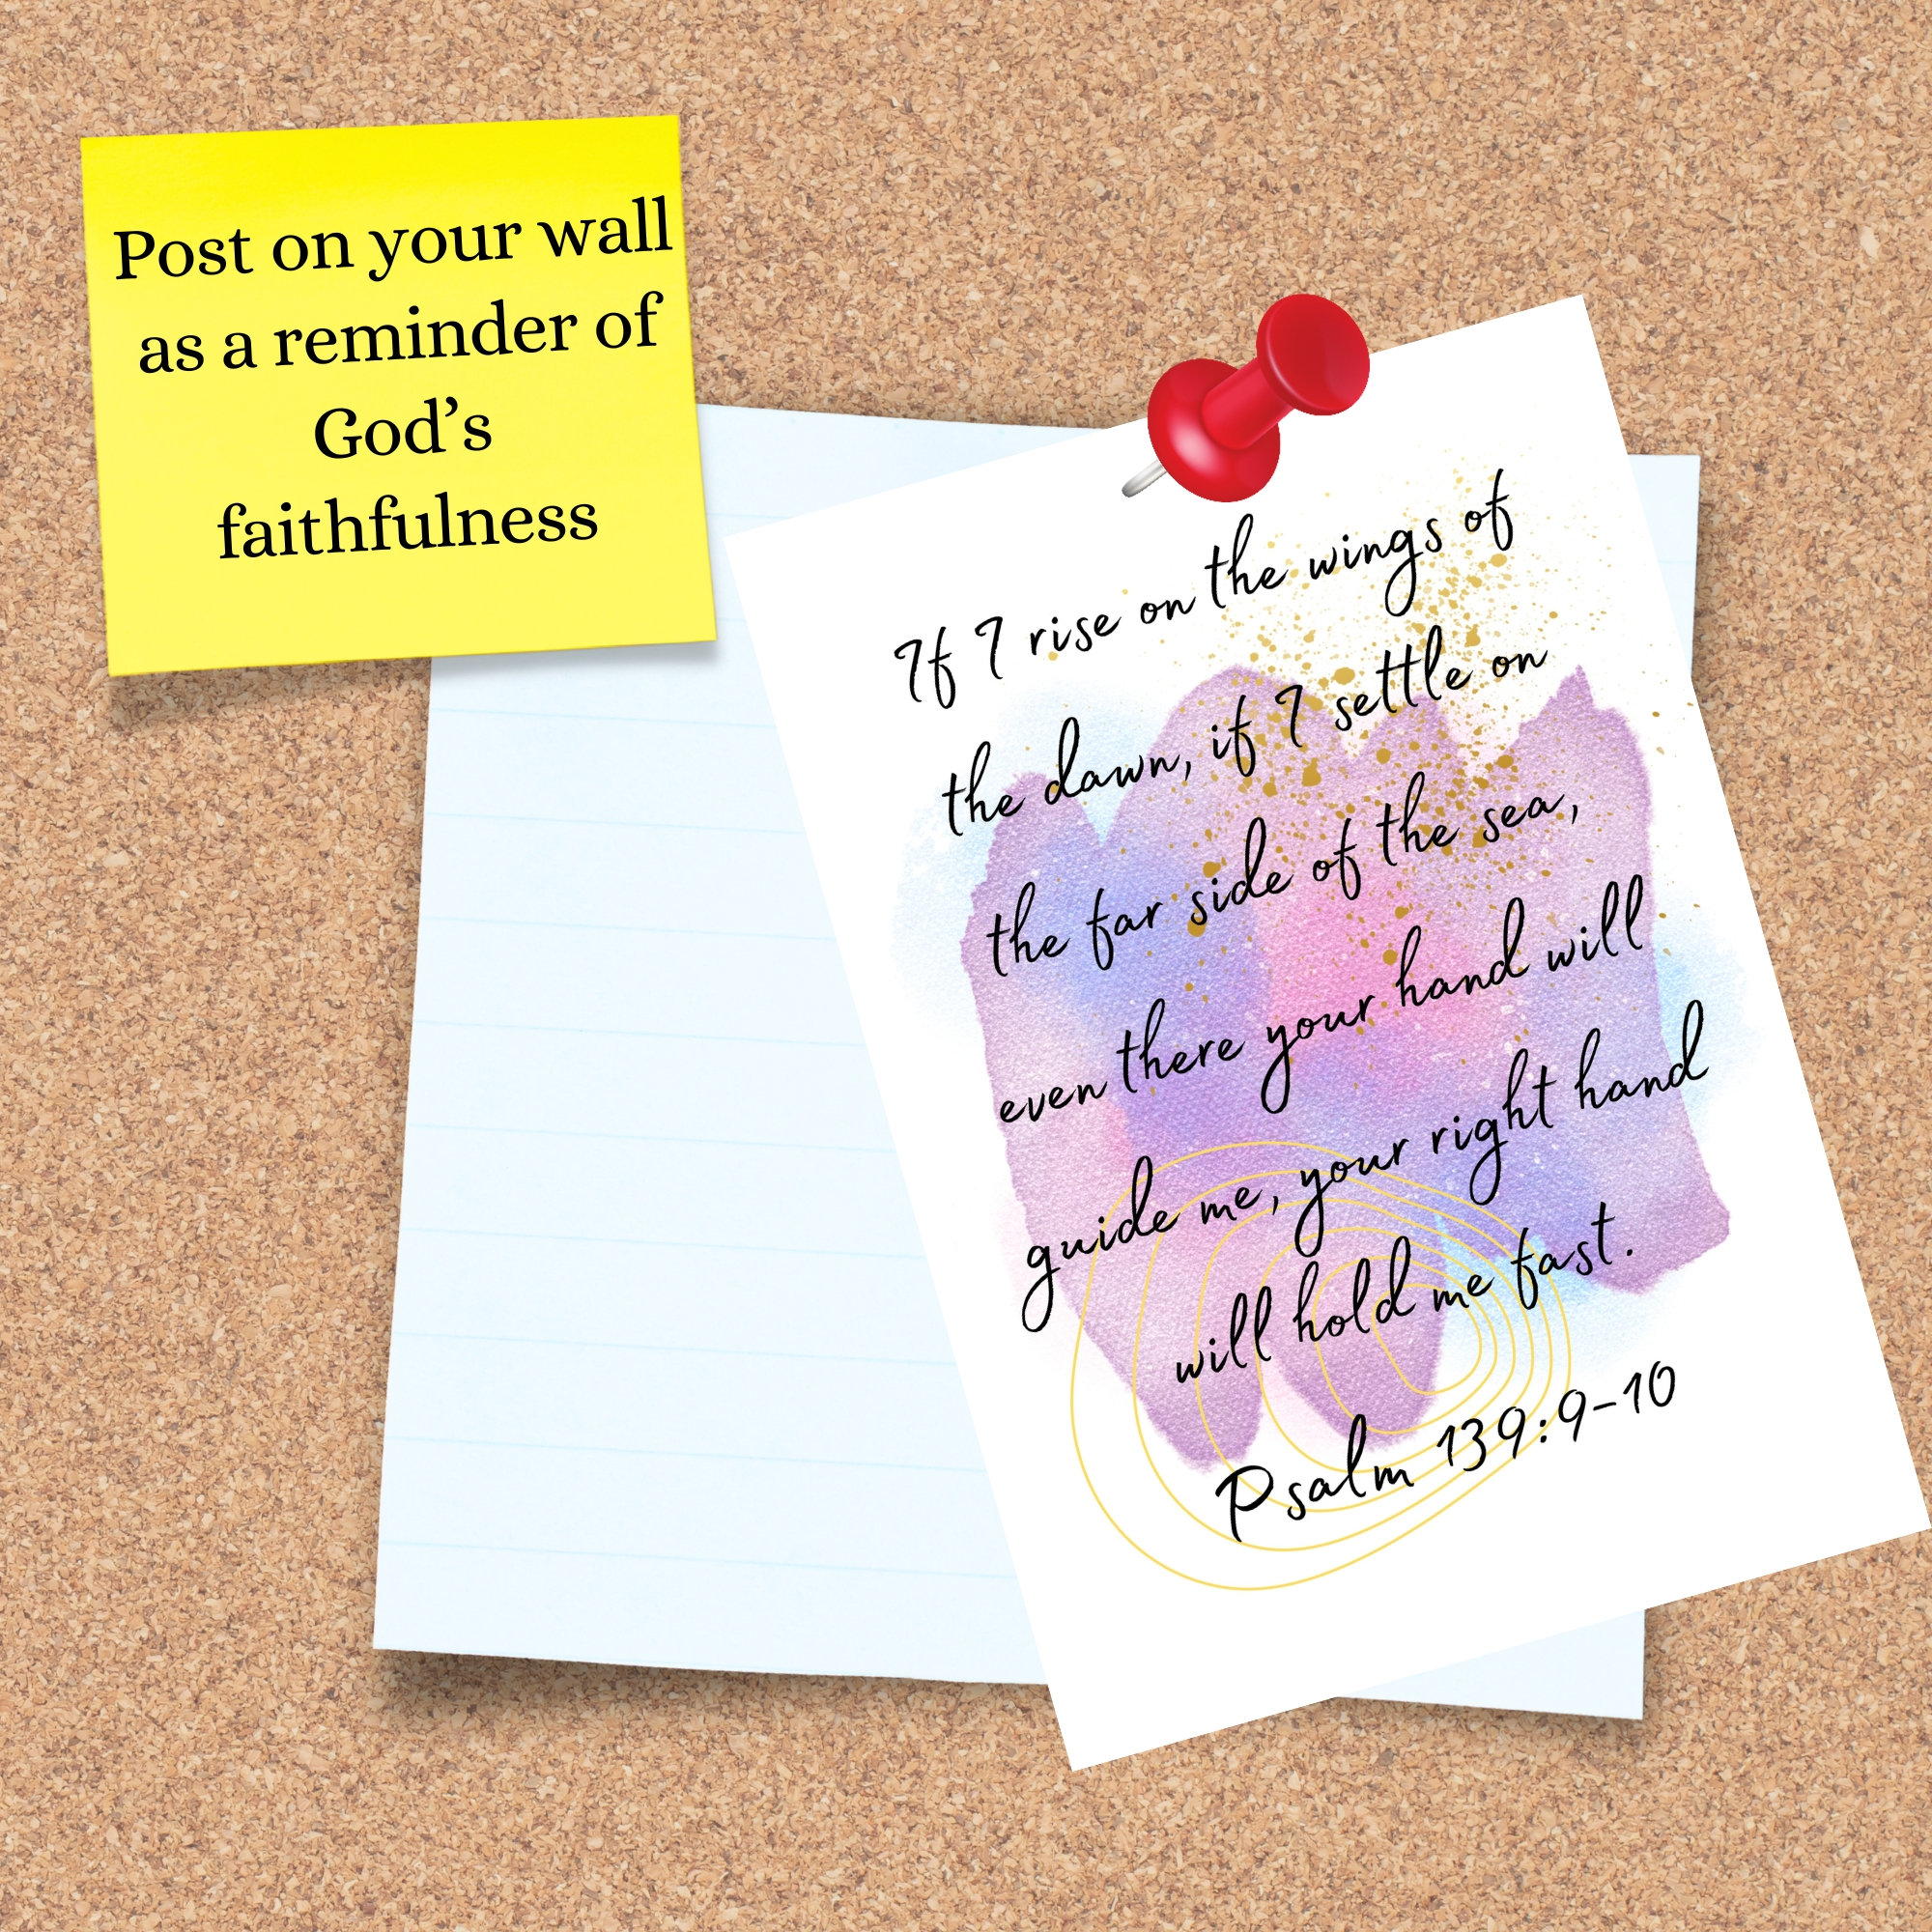 Post on your wall
as a reminder of
God’s
faithfulness
If I rise on the wings of
the dawn, if I settle on
the far side of the sea,
even there your hand will
guide me, your right hand
will hold me fast.
Psalm 139:9-10